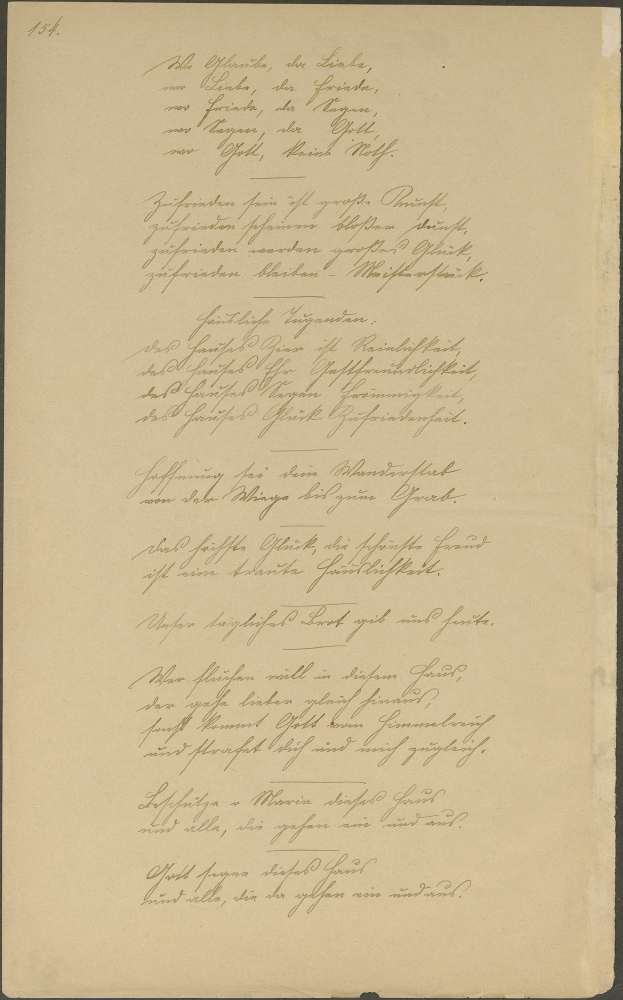 154.
Wo Glaube, da Liebe,
wo Liebe, da Friede,
wo Friede, da Segen,
wo Segen, da Gott,
wo Gott, keine Noth.
Zufrieden sein ist große Kunst,
zufrieden scheinen bloßer Dunst,
zufrieden werden großes Glück,
zufrieden bleiben – Meisterstück.
Häusliche Tugenden:
Des Hauses Zier ist Reinlichkeit,
des Hauses Ehr Gastfreundlichkeit,
des Hauses Segen Frömmigkeit,
des Hauses Glück Zufriedenheit.
Hoffnung sei dein Wanderstab
von der Wiege bis zum Grab.
Das höchste Glück, die schönste Freud
ist eine traute Häuslichkeit.
Unser tägliches Brot gib uns heute.
Wer fluchen will in diesem Haus,
der gehe lieber gleich hinaus,
sonst kommt Gott vom Himmelreich
und strafet dich und mich zugleich.
Beschütze o Maria dieses Haus
und alle, die gehen ein und aus.
Gott segne dieses Haus
und alle, die da gehen ein und aus.